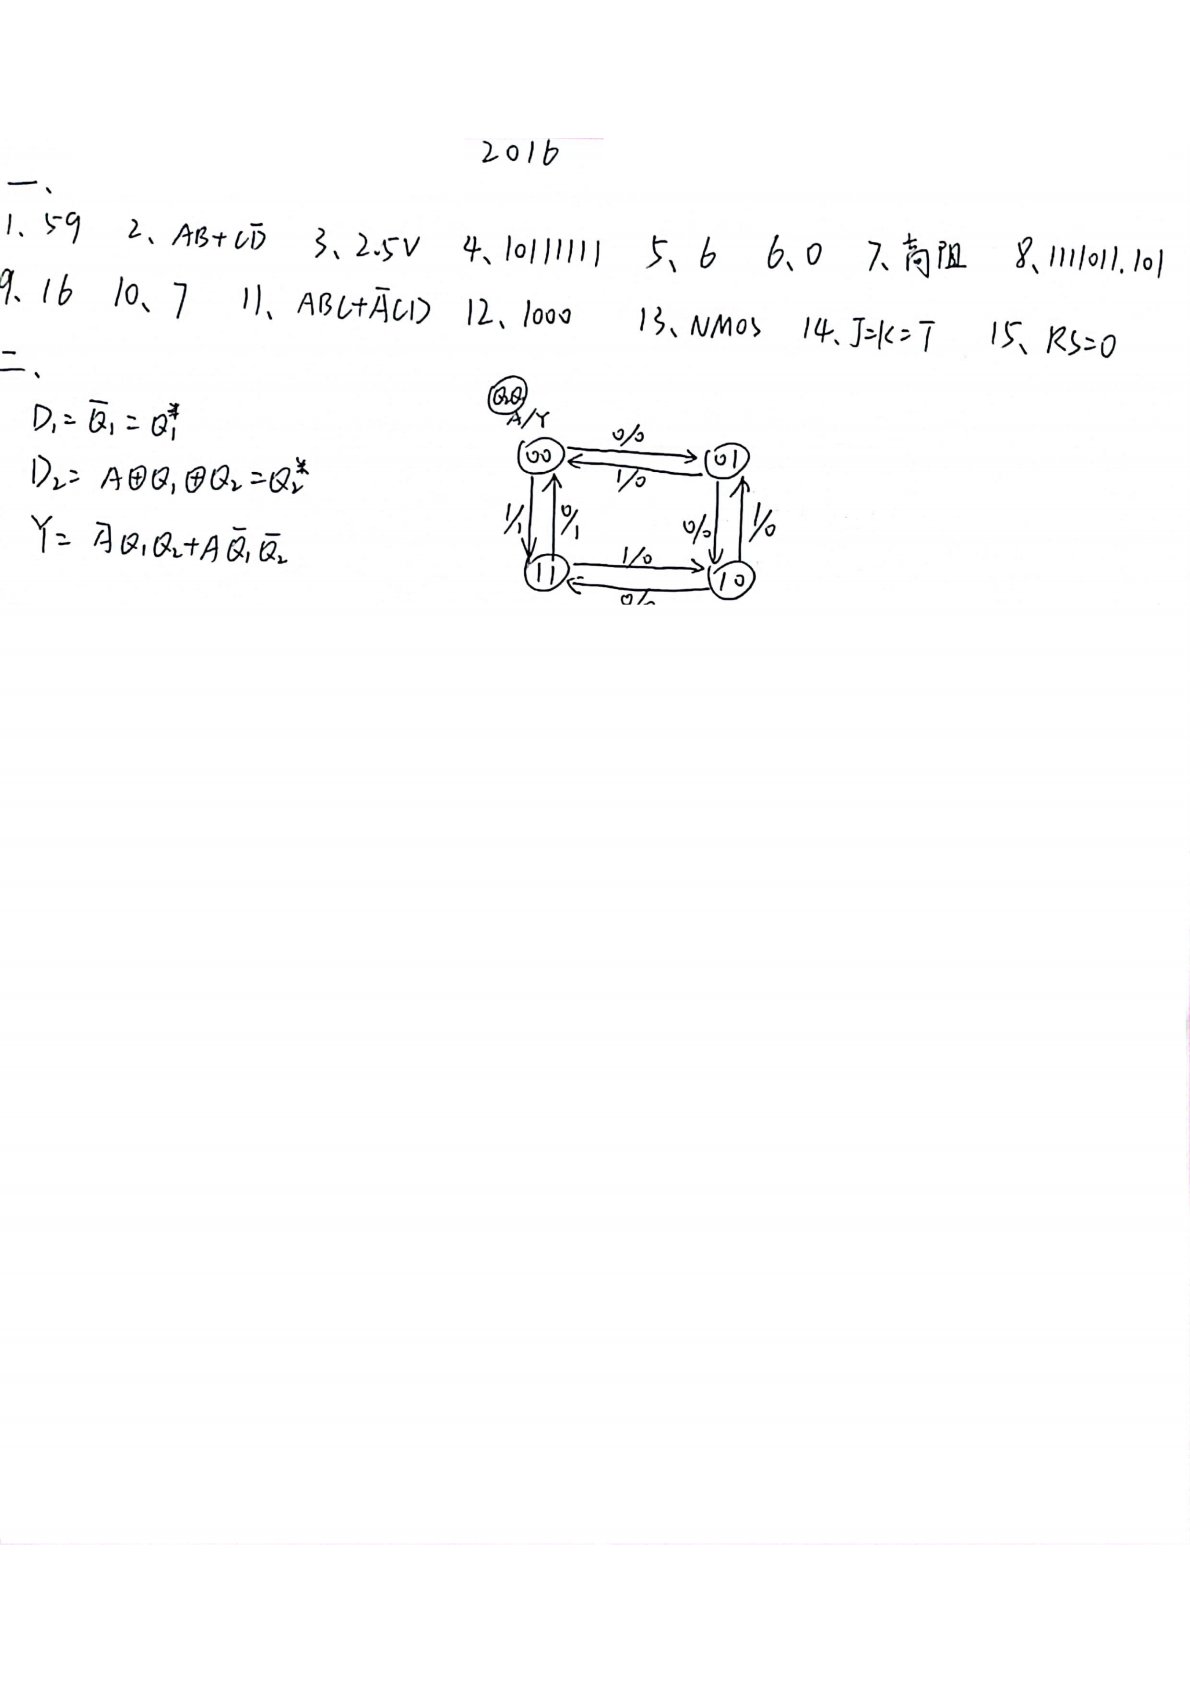 2016
一、
1、59 2、AB+CD̄ 3、2.5V 4、10111111 5、6 6、0 7、高阻 8、1111011.101
9、16 10、7 11、ABC+ĀCD 12、1000 13、NMOS 14、J=K=T 15、RS=0
二、
D₁=Q̄₁=Q₁*
D₂=A⊕Q₁⊕Q₂=Q₂*
Y=ĀQ₁Q₂+AQ̄₁Q̄₂
A/Y
00 0/0 01
1/0
1/1 0/1 0/0 1/0
11 1/0 10